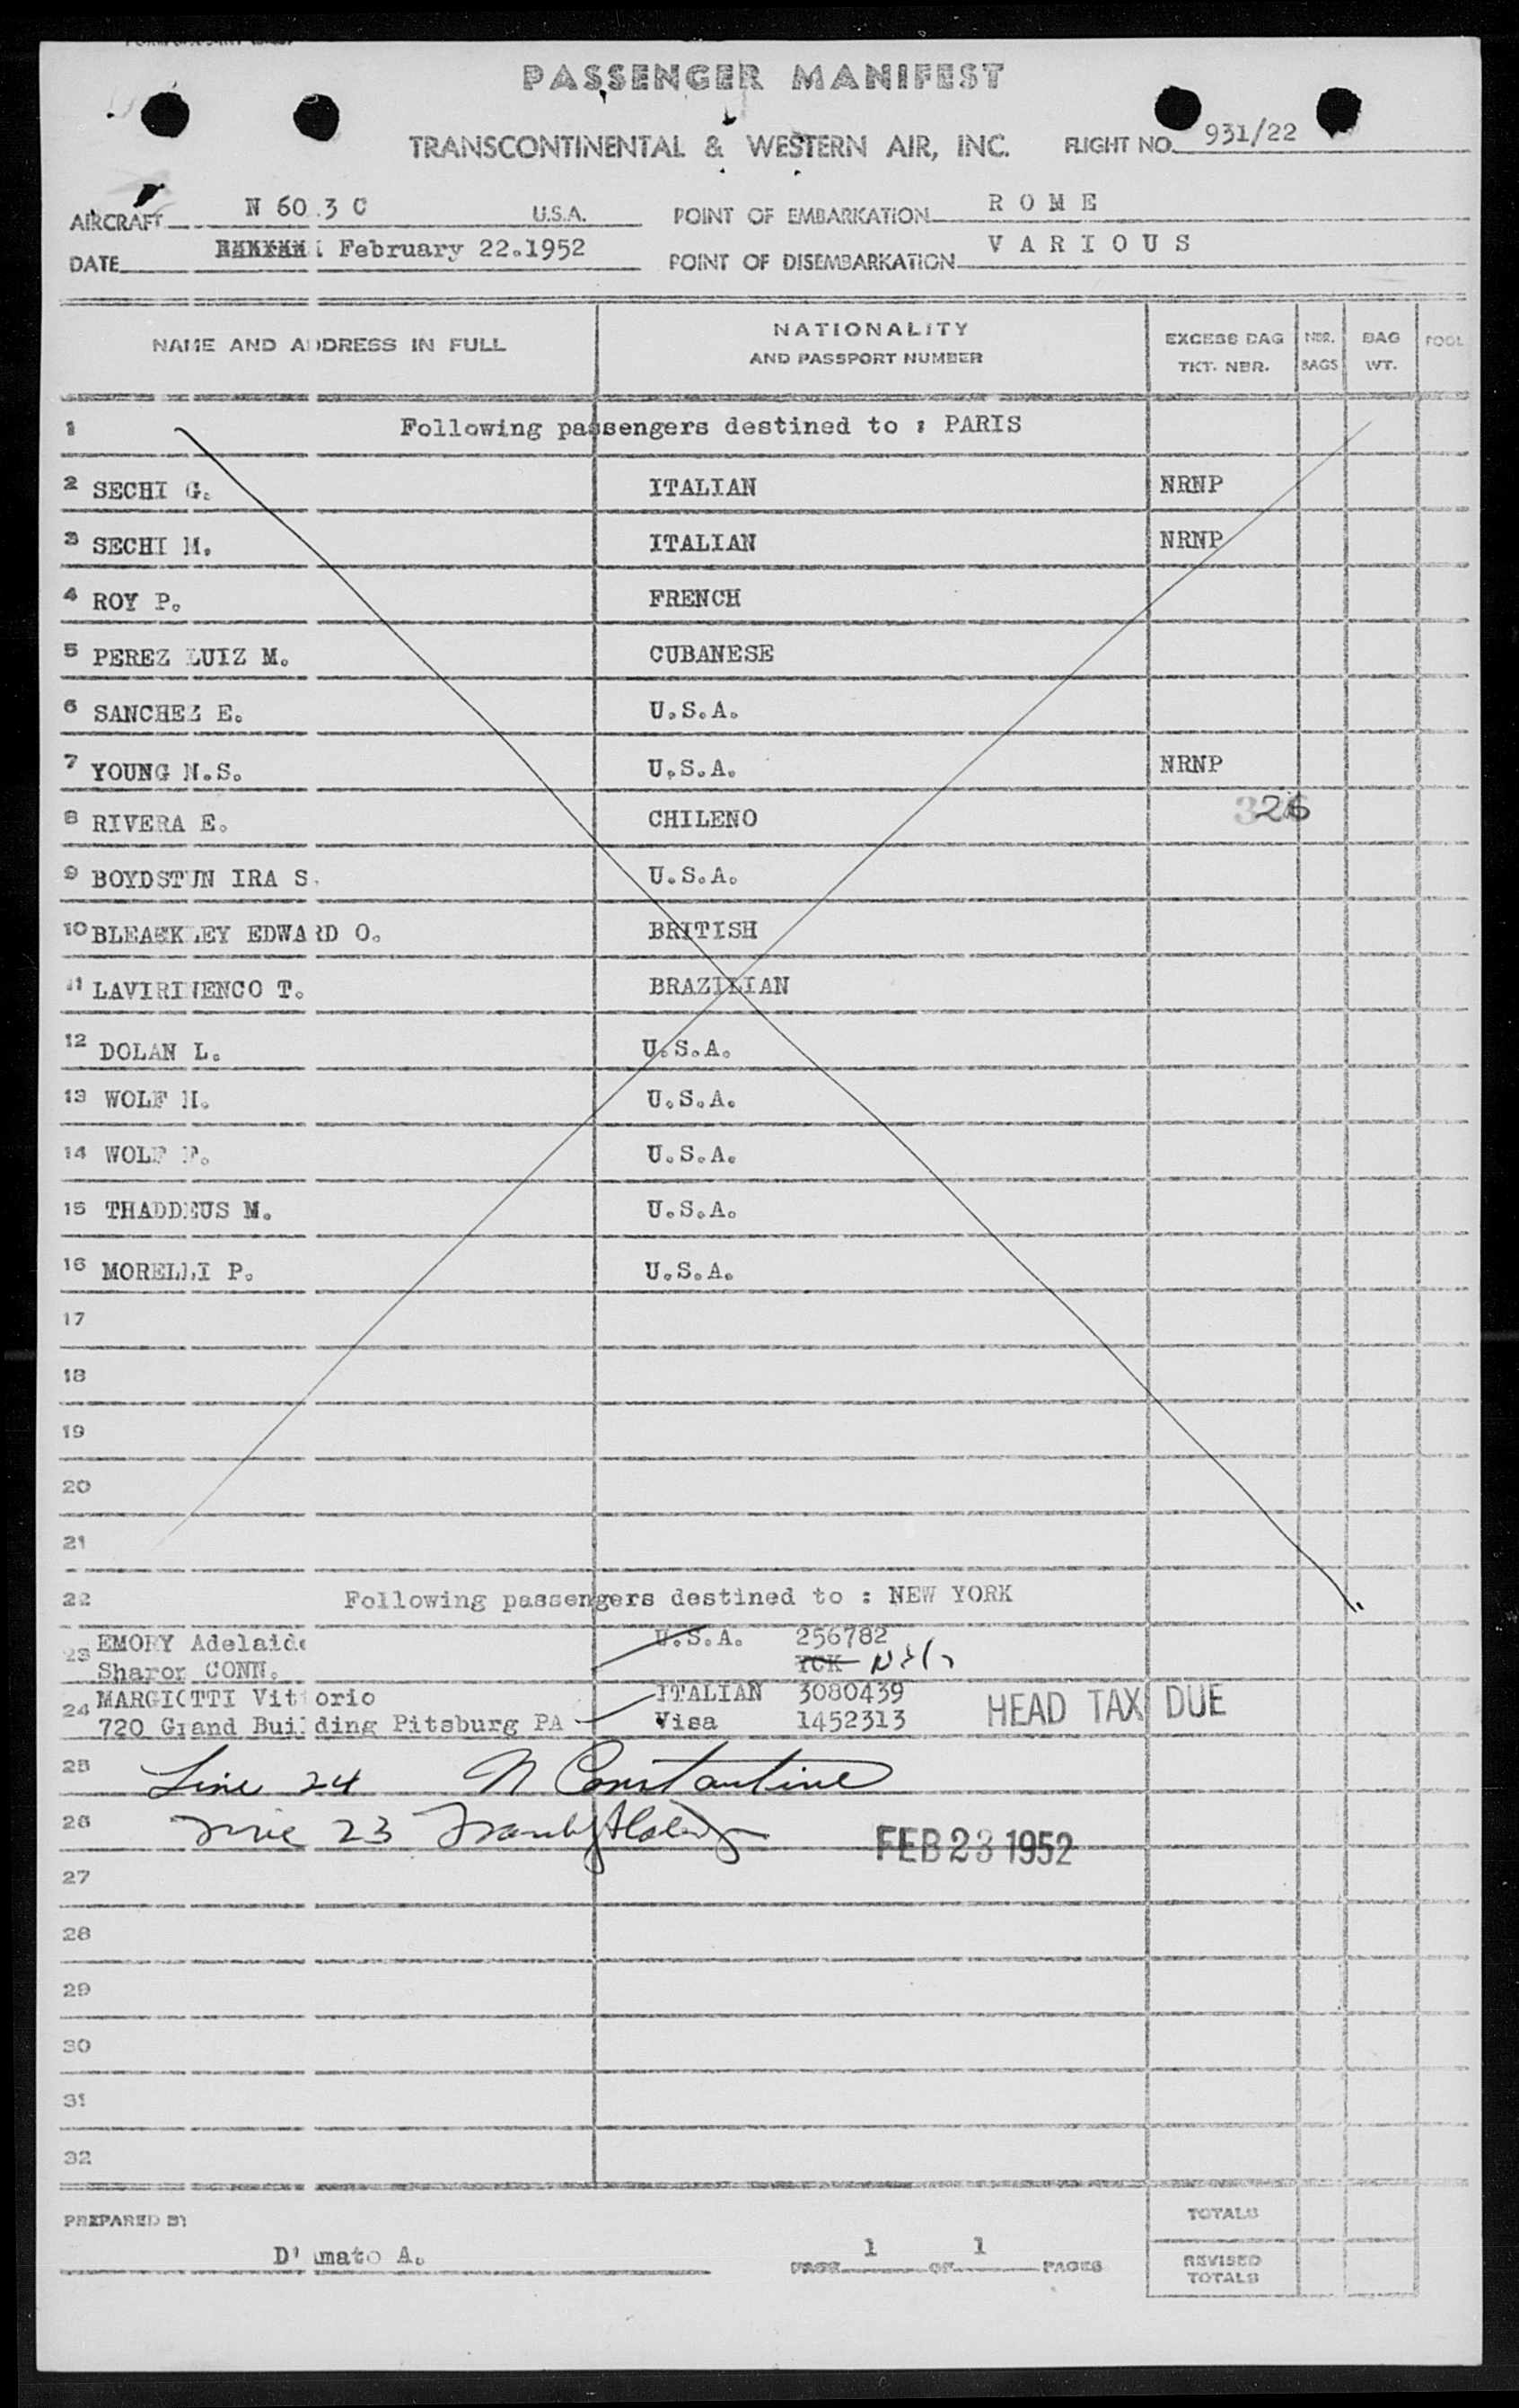 PASSENGER MANIFEST
TRANSCONTINENTAL & WESTERN AIR, INC. FLIGHT NO. 931/22
AIRCRAFT N 60 3 C U.S.A. POINT OF EMBARKATION R O M E
DATE February 22.1952 POINT OF DISEMBARKATION V A R I O U S
NAME AND ADDRESS IN FULL NATIONALITY AND PASSPORT NUMBER EXCESS BAG TKT. NBR. NBR. BAGS BAG WT. POOL
1 Following passengers destined to : PARIS
2 SECHI G. ITALIAN NRNP
3 SECHI M. ITALIAN NRNP
4 ROY P. FRENCH
5 PEREZ LUIZ M. CUBANESE
6 SANCHEZ E. U.S.A.
7 YOUNG N.S. U.S.A. NRNP
8 RIVERA E. CHILENO
9 BOYDSTUN IRA S. U.S.A.
10 EDWARD O. BRITISH
11 LAVIRINENCO T. BRAZILIAN
12 DOLAN L. U.S.A.
13 WOLF H. U.S.A.
14 WOLF F. U.S.A.
15 THADDEUS M. U.S.A.
16 MORELLI P. U.S.A.
17
18
19
20
21
22 Following passengers destined to : NEW YORK
23 EMORY Adelaide U.S.A. 256782
Sharon CONN.
24 MARGIOTTI Vittorio ITALIAN 3080439
720 Grand Building Pitsburg PA Visa 1452313 HEAD TAX DUE
25 Line 24 N Constantine
26 Line 23 FEB 23 1952
27
28
29
30
31
32
PREPARED BY TOTALS
D'Amato A. PAGE 1 OF 1 PAGES REVISED TOTALS